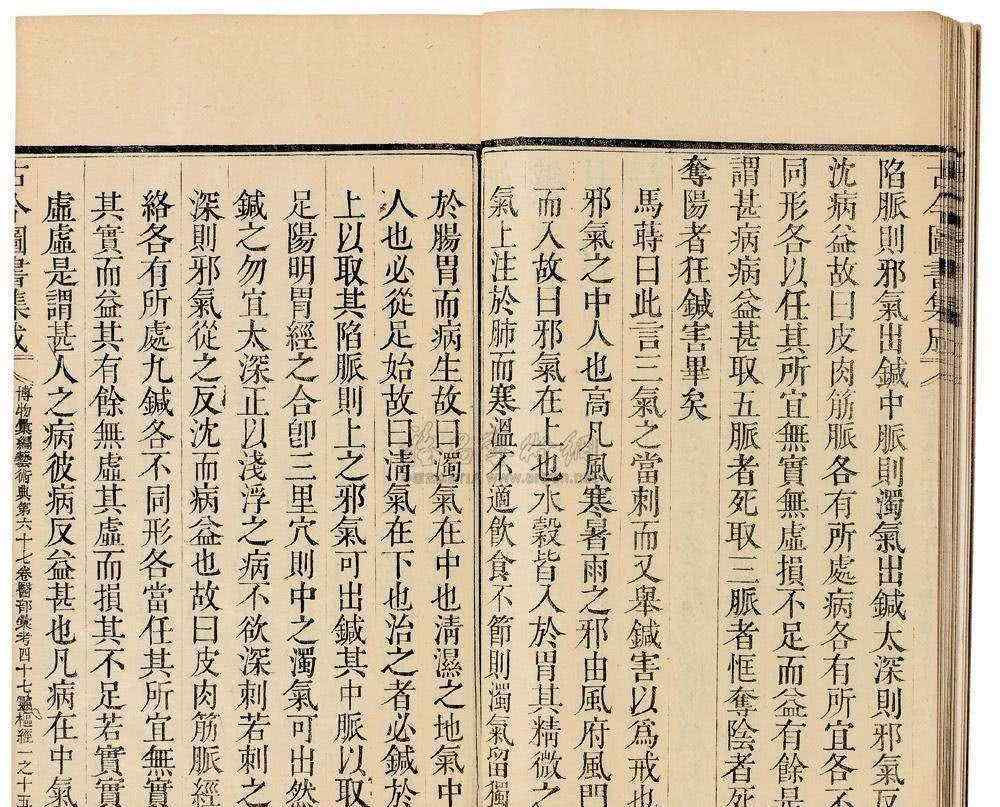 古今圖書集成
陷脈則邪氣出鍼中脈則濁氣出鍼太深則邪氣反
沈病益故曰皮肉筋脈各有所處病各有所宜各不
同形各以任其所宜無實無虛損不足而益有餘是
謂甚病病益甚取五脈者死取三脈者恇奪陰者死
奪陽者狂鍼害畢矣
馬蒔曰此言三氣之當刺而又舉鍼害以爲戒也
邪氣之中人也高凡風寒暑雨之邪由風府風門
而入故曰邪氣在上也水穀皆入於胃其精微之
氣上注於肺而寒溫不適飲食不節則濁氣留
於腸胃而病生故曰濁氣在中也淸濕之地氣中
人也必從足始故曰淸氣在下也治之者必鍼於
上以取其陷脈則上之邪氣可出鍼其中脈以取
足陽明胃經之合卽三里穴則中之濁氣可出然
鍼之勿宜太深正以淺浮之病不欲深刺若刺之
深則邪氣從之反沈而病益也故曰皮肉筋脈經
絡各有所處九鍼各不同形各當任其所宜無實
其實而益其有餘無虛其虛而損其不足若實實
虛虛是謂甚人之病彼病反益甚也凡病在中氣
古今圖書集成 博物彙編藝術典第六十七卷醫部彙考四十七靈樞經一之十五